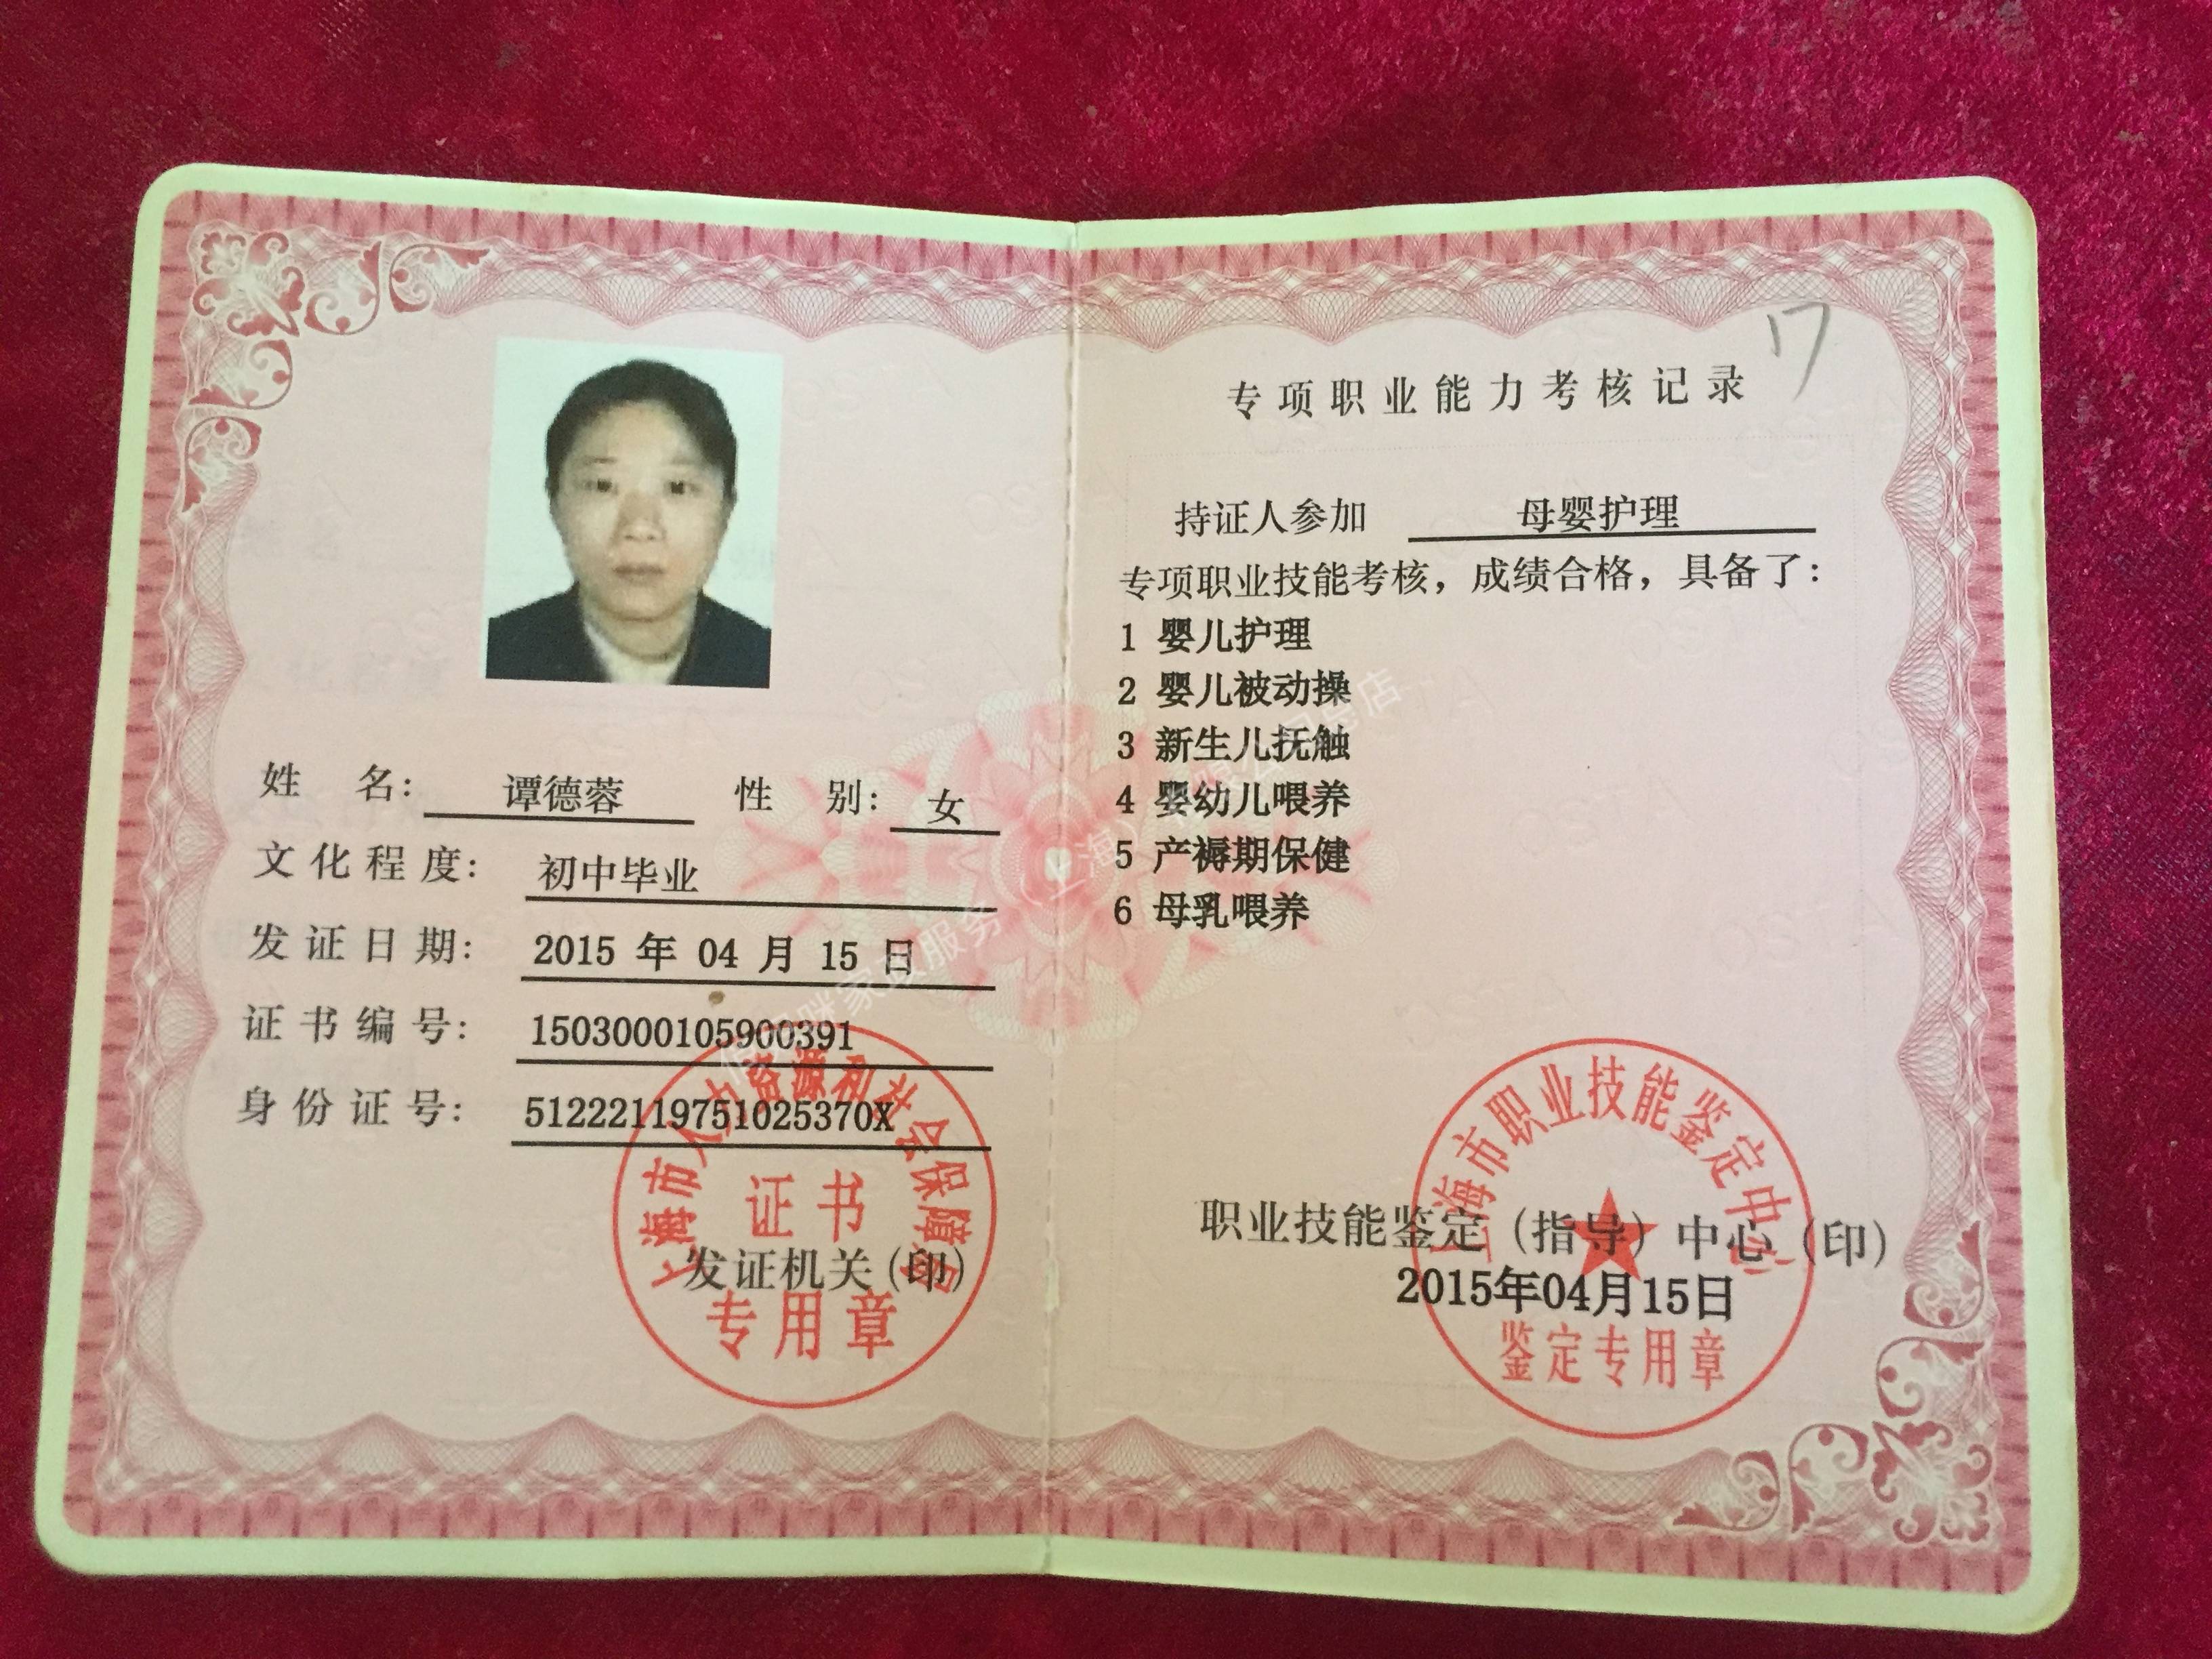 姓 名: 谭德蓉 性 别: 女
文化程度: 初中毕业
发证日期: 2015 年 04 月 15 日
证书编号: 1503000105900391
身份证号: 51222119751025370X
上海市人力资源和社会保障局
证书
发证机关(印)
专用章
17
专项职业能力考核记录
持证人参加 母婴护理
专项职业技能考核，成绩合格，具备了:
1 婴儿护理
2 婴儿被动操
3 新生儿抚触
4 婴幼儿喂养
5 产褥期保健
6 母乳喂养
上海市职业技能鉴定中心
职业技能鉴定(指导)中心(印)
2015年04月15日
鉴定专用章